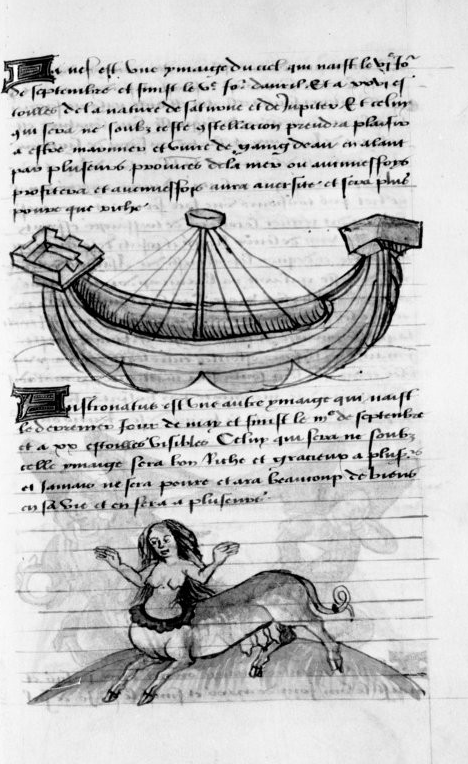 La nef est une ymaige du ciel qui naist le vi.e Jor
de septembre et finist le v.e Jor davril Et a xxvi es
toilles de la nature de saturne et de Jupiter Et celuy
qui sera ne soubz ceste constellacion prendra plaisir
a estre maronier et vivre de gaing deau en alant
par plusieurs provinces de la mer ou aucunessoys
profitera et aucunessoys aura aversite et sera plus
povre que riche
est une autre ymaige qui naist
le derrenier Jour de may et finist le de septembre
et a xx estoilles visibles Celuy qui sera ne soubz
celle ymaige sera bon Riche et gracieux a plusrs
et Jamais ne sera povre et ara beaucoup de biens
en sa vie et en fera a pluseurs